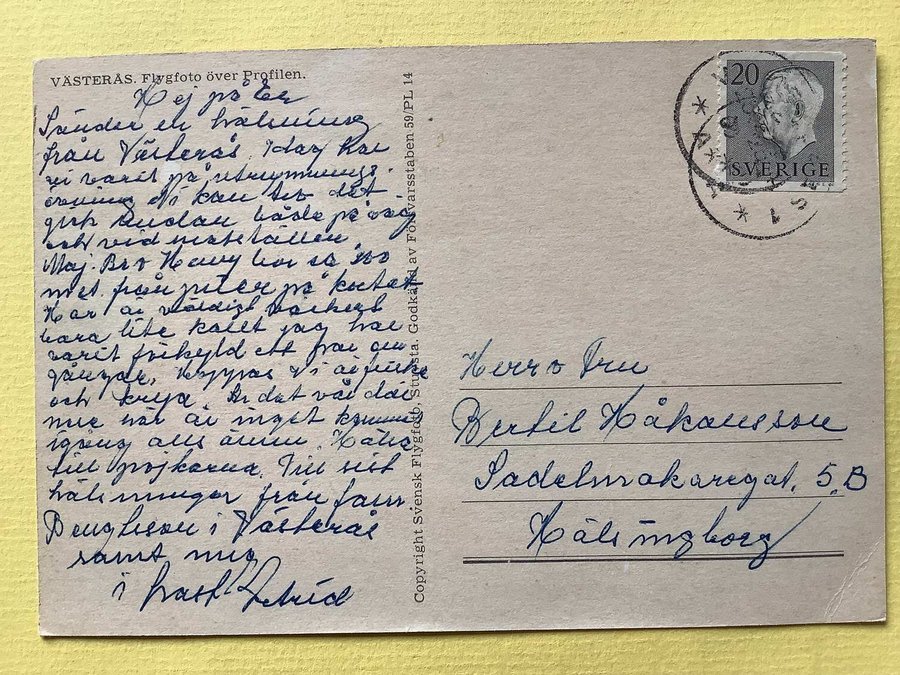 VÄSTERÅS. Flygfoto över Profilen.
Hej på Er
Sänder en hälsning
från Västerås. Idag har
vi varit på utrymnings
övning. Ni kan tro det
gick undan både på väg
och vid matställen.
Maj Bro Henry bor ca 200
met. från
Här är väldigt vackert
bara lite kallt jag har
varit förkyld ett par
gånger. Hoppas Ni är
och krya. Är det vår där
nere här är inget
igång alls ännu. Häls
till pojkarna. Till sist
hälsningar från fam
Bengtsson i Västerås
samt mig
i hast Astrid
Copyright Svensk Flygfoto, Stugsta. Godkänd av Försvarsstaben 59/PL 14
20
SVERIGE
Herr o Fru
Bertil Håkansson
Sadelmakaregat. 5.B
Hälsingborg